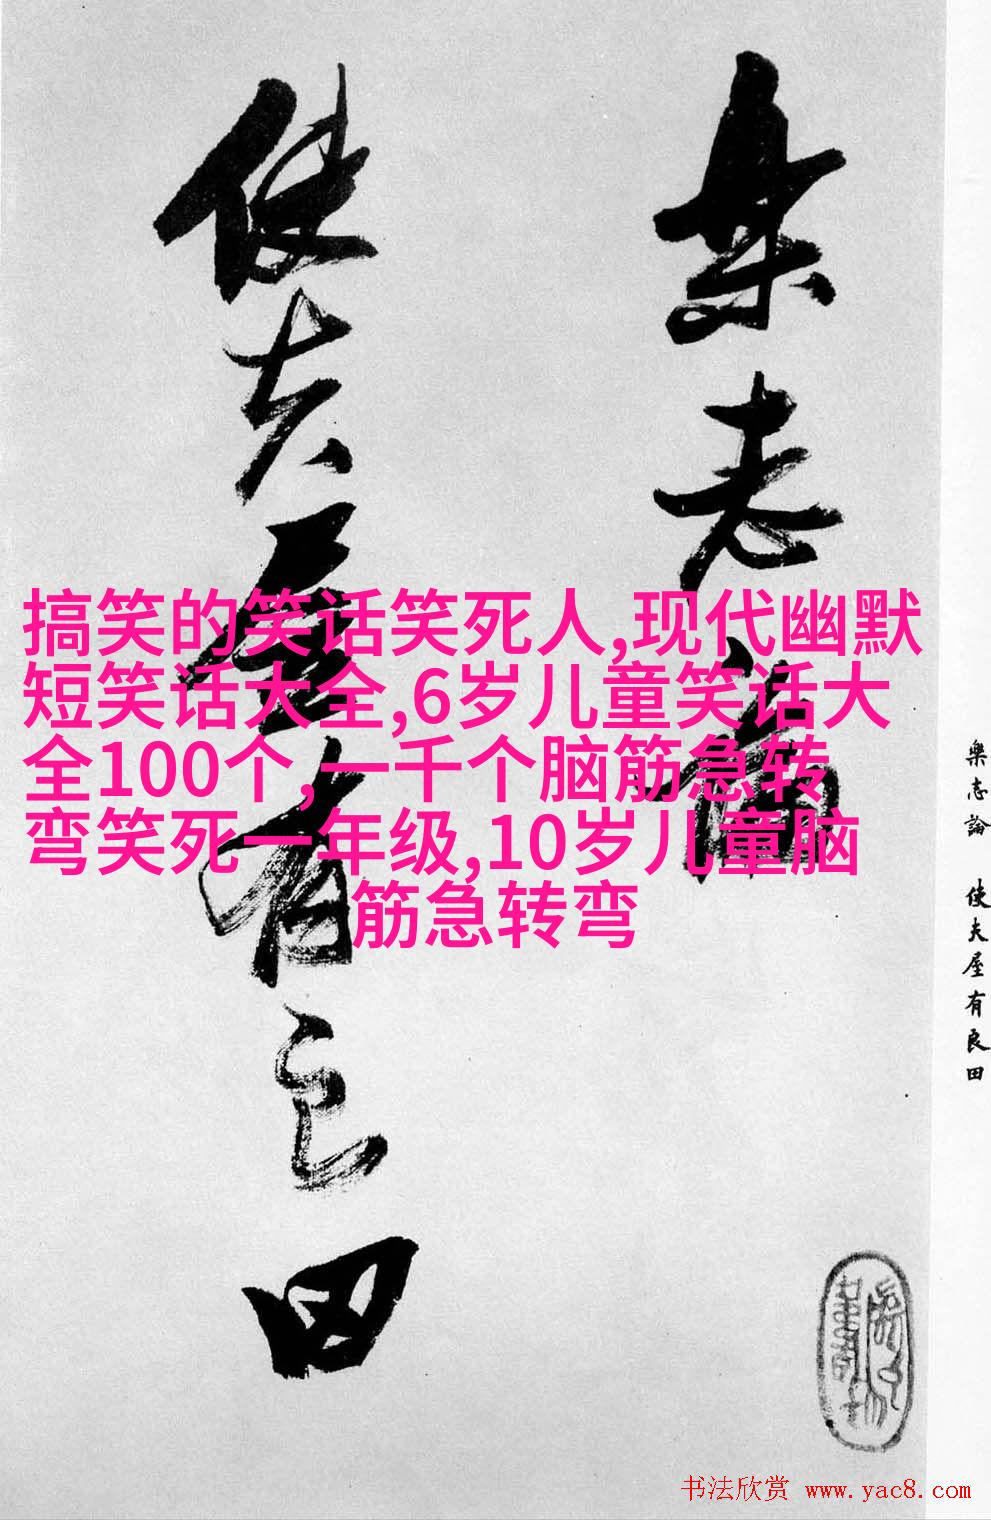 樂志論
使夫屋有良田
搞笑的笑话笑死人,现代幽默
短笑话大全,6岁儿童笑话大
全100个,一千个脑筋急转
弯笑死一年级,10岁儿童脑
筋急转弯
樂志論 使夫屋有良田
书法欣赏 www.yac8.com